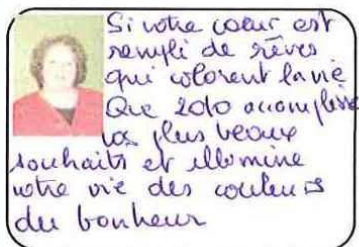 Si votre coeur est
rempli de rêves
qui colorent la vie
Que 2010 accomplisse
vos plus beaux
souhaits et illumine
votre vie des couleurs
du bonheur